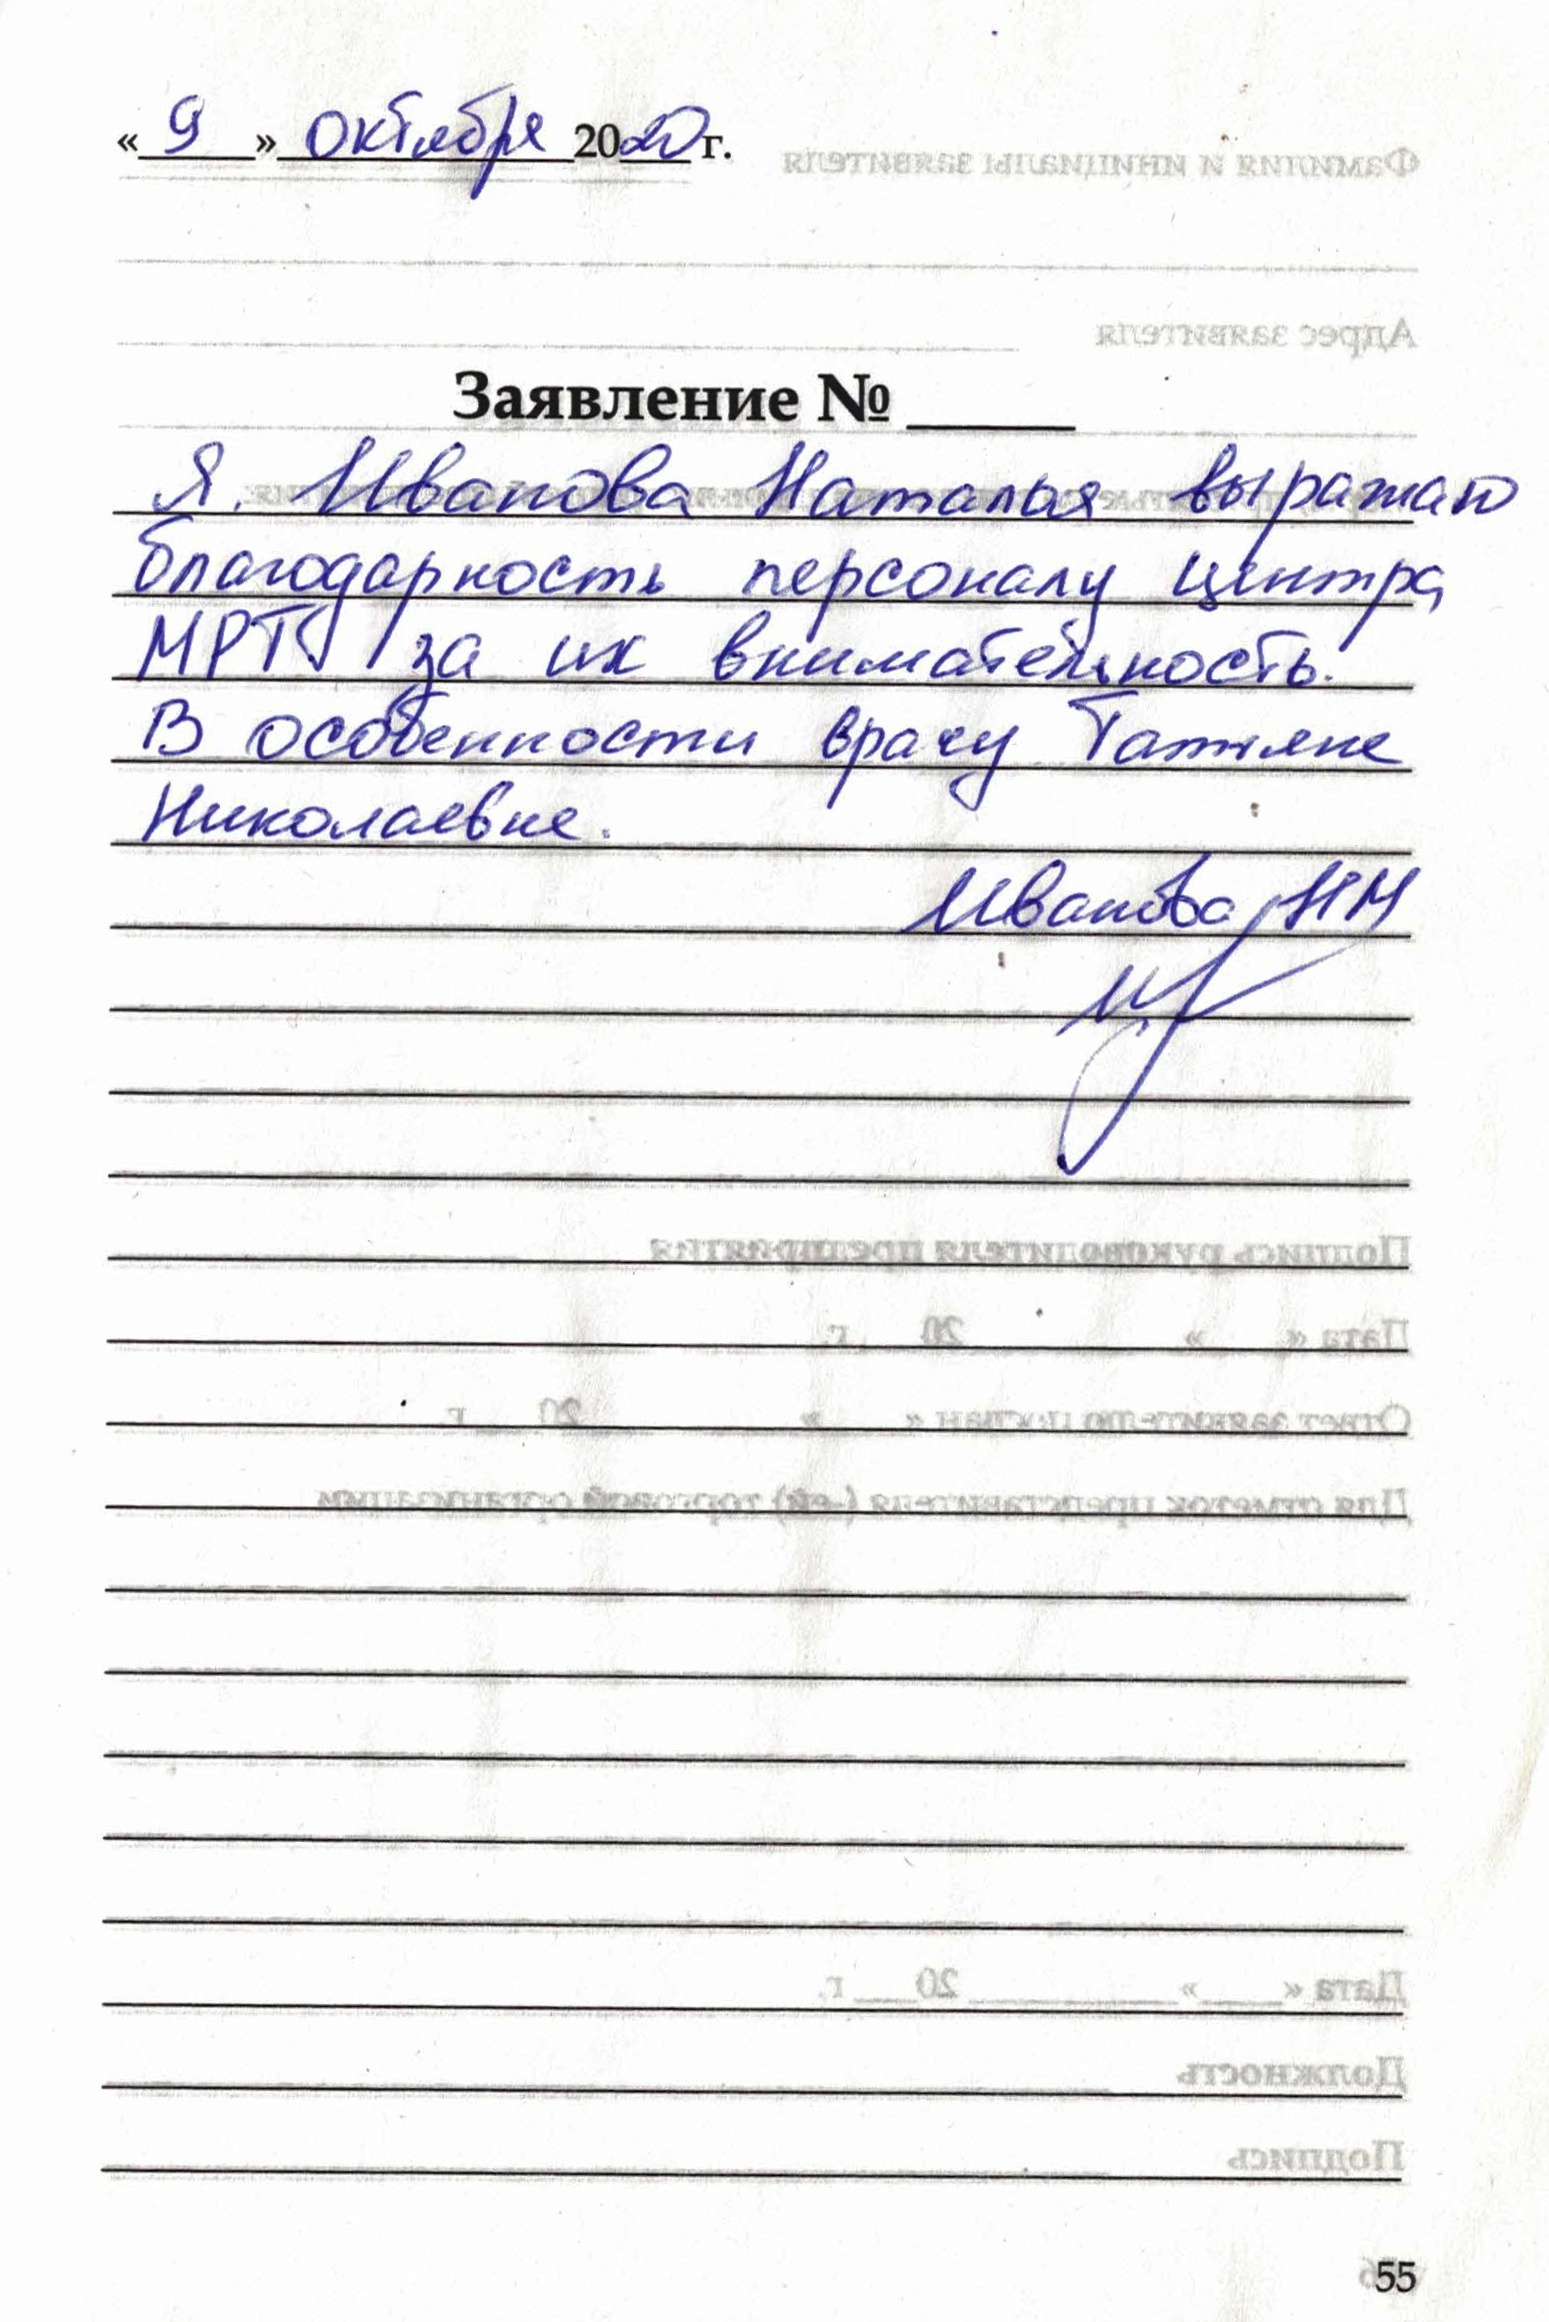 «9» октября 2020 г.
Заявление № ____
Я. Иванова Наталья выражаю
благодарность персоналу центра
МРТ за их внимательность.
В особенности врачу Татьяне
Николаевне.
Иванова НМ
55